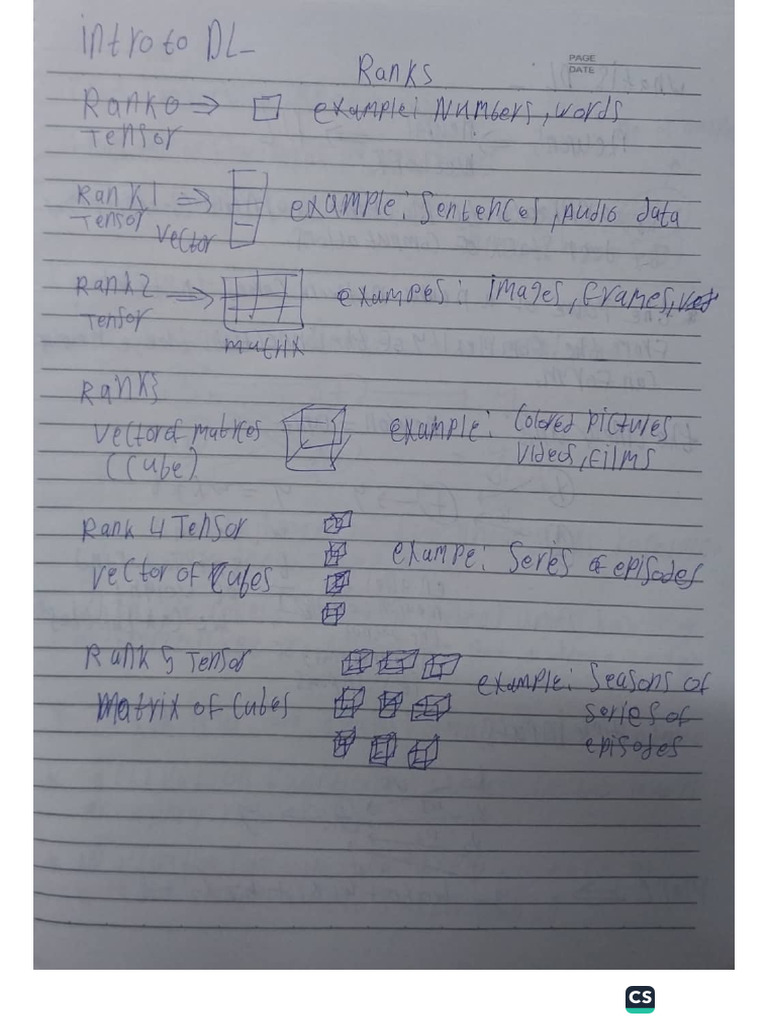 Intro to DL
PAGE
DATE
Ranks
Rank 0 ⇒ example: Numbers, words
Tensor
Rank 1 ⇒ example: Sentences, Audio data
Tensor
Vector
Rank 2 ⇒ exampes: images, frames,
Tensor
matrix
Rank3
Vector of matrices example: Colored pictures
(Cube) videos, films
Rank 4 Tensor
exampe: Series of episodes
Vector of Cubes
Rank 5 Tensor
example: Seasons of
Matrix of Cubes series of
episodes
CS